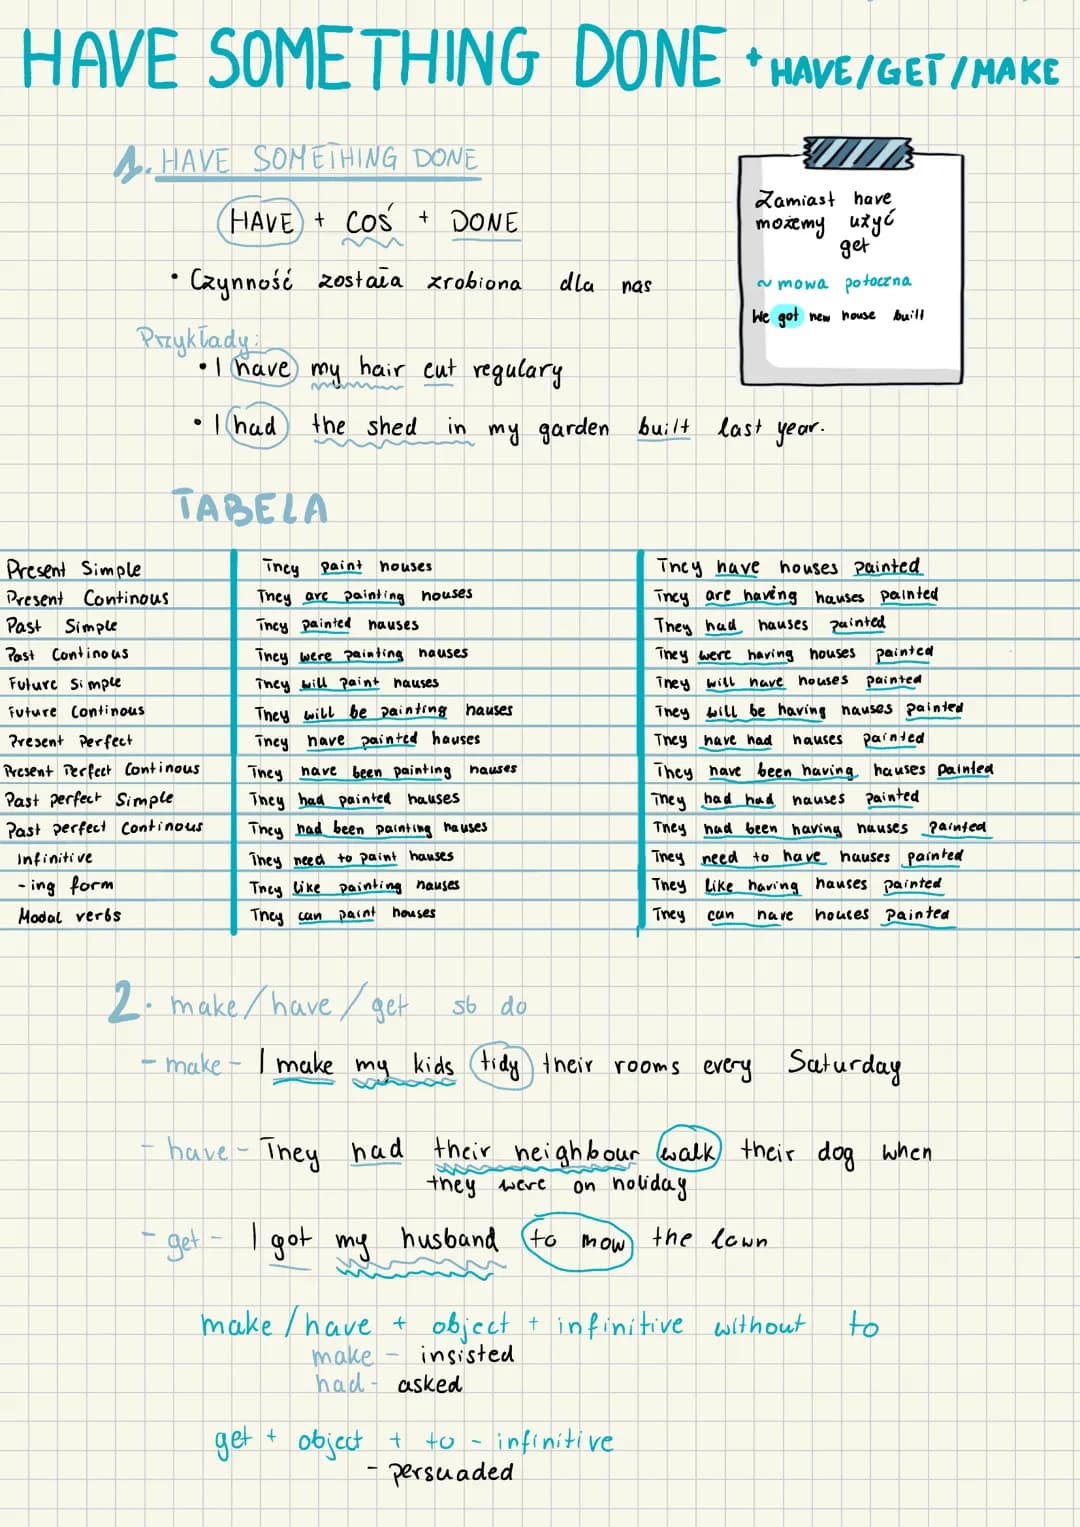 HAVE SOMETHING DONE + HAVE/GET/MAKE
1. HAVE SOMETHING DONE
HAVE + COŚ + DONE
• Czynność została zrobiona dla nas
Zamiast have
możemy użyć
get
~ mowa potoczna
We got new house built
Przykłady:
• I have my hair cut regulary
• I had the shed in my garden built last year.
TABELA
Present Simple They paint houses They have houses painted
Present Continous They are painting houses They are having hauses painted
Past Simple They painted hauses They had hauses painted
Past Continous They were painting hauses They were having houses painted
Future Simple They will paint hauses They will have houses painted
Future Continous They will be painting hauses They will be having hauses painted
Present Perfect They have painted hauses They have had hauses painted
Present Perfect Continous They have been painting hauses They have been having hauses painted
Past perfect Simple They had painted hauses They had had hauses painted
Past perfect Continous They had been painting hauses They had been having hauses painted
Infinitive They need to paint hauses They need to have hauses painted
- ing form They like painting hauses They like having hauses painted
Modal verbs They can paint houses They can have houses painted
2. make/have/get sb do
- make - I make my kids tidy their rooms every Saturday
- have - They had their neighbour walk their dog when
they were on holiday
- get - I got my husband to mow the lawn
make/have + object + infinitive without to
make - insisted
had - asked
get + object + to - infinitive
- persuaded